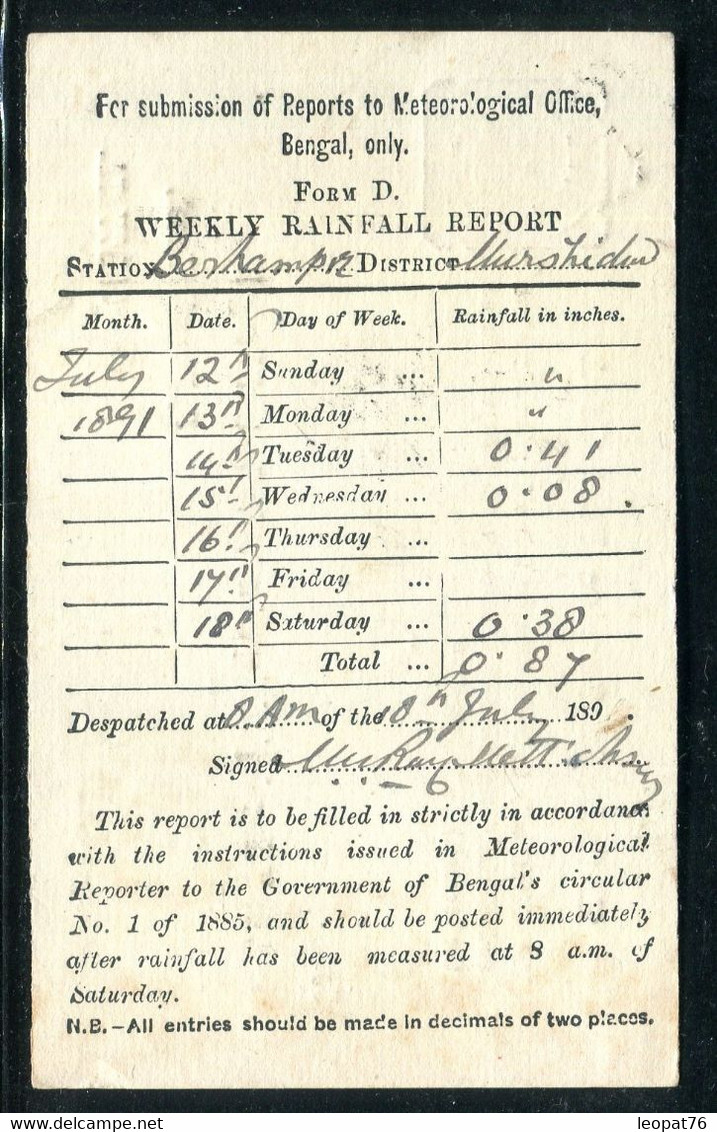 For submission of Reports to Meteorological Office,
Bengal, only.
FORM D.
WEEKLY RAINFALL REPORT
STATION Berhampore DISTRICT Murshidad
Month. Date. Day of Week. Rainfall in inches.
July 12th Sunday ... "
1891 13th Monday ... "
14th Tuesday ... 0.41
15th Wednesday ... 0.08
16th Thursday ...
17th Friday ...
18th Saturday ... 0.38
Total ... 0.87
Despatched at 8 Am of the 18th July 189 .
Signed
This report is to be filled in strictly in accordance
with the instructions issued in Meteorological
Reporter to the Government of Bengal's circular
No. 1 of 1885, and should be posted immediately
after rainfall has been measured at 8 a.m. of
Saturday.
N.B.—All entries should be made in decimals of two places.
leopat76